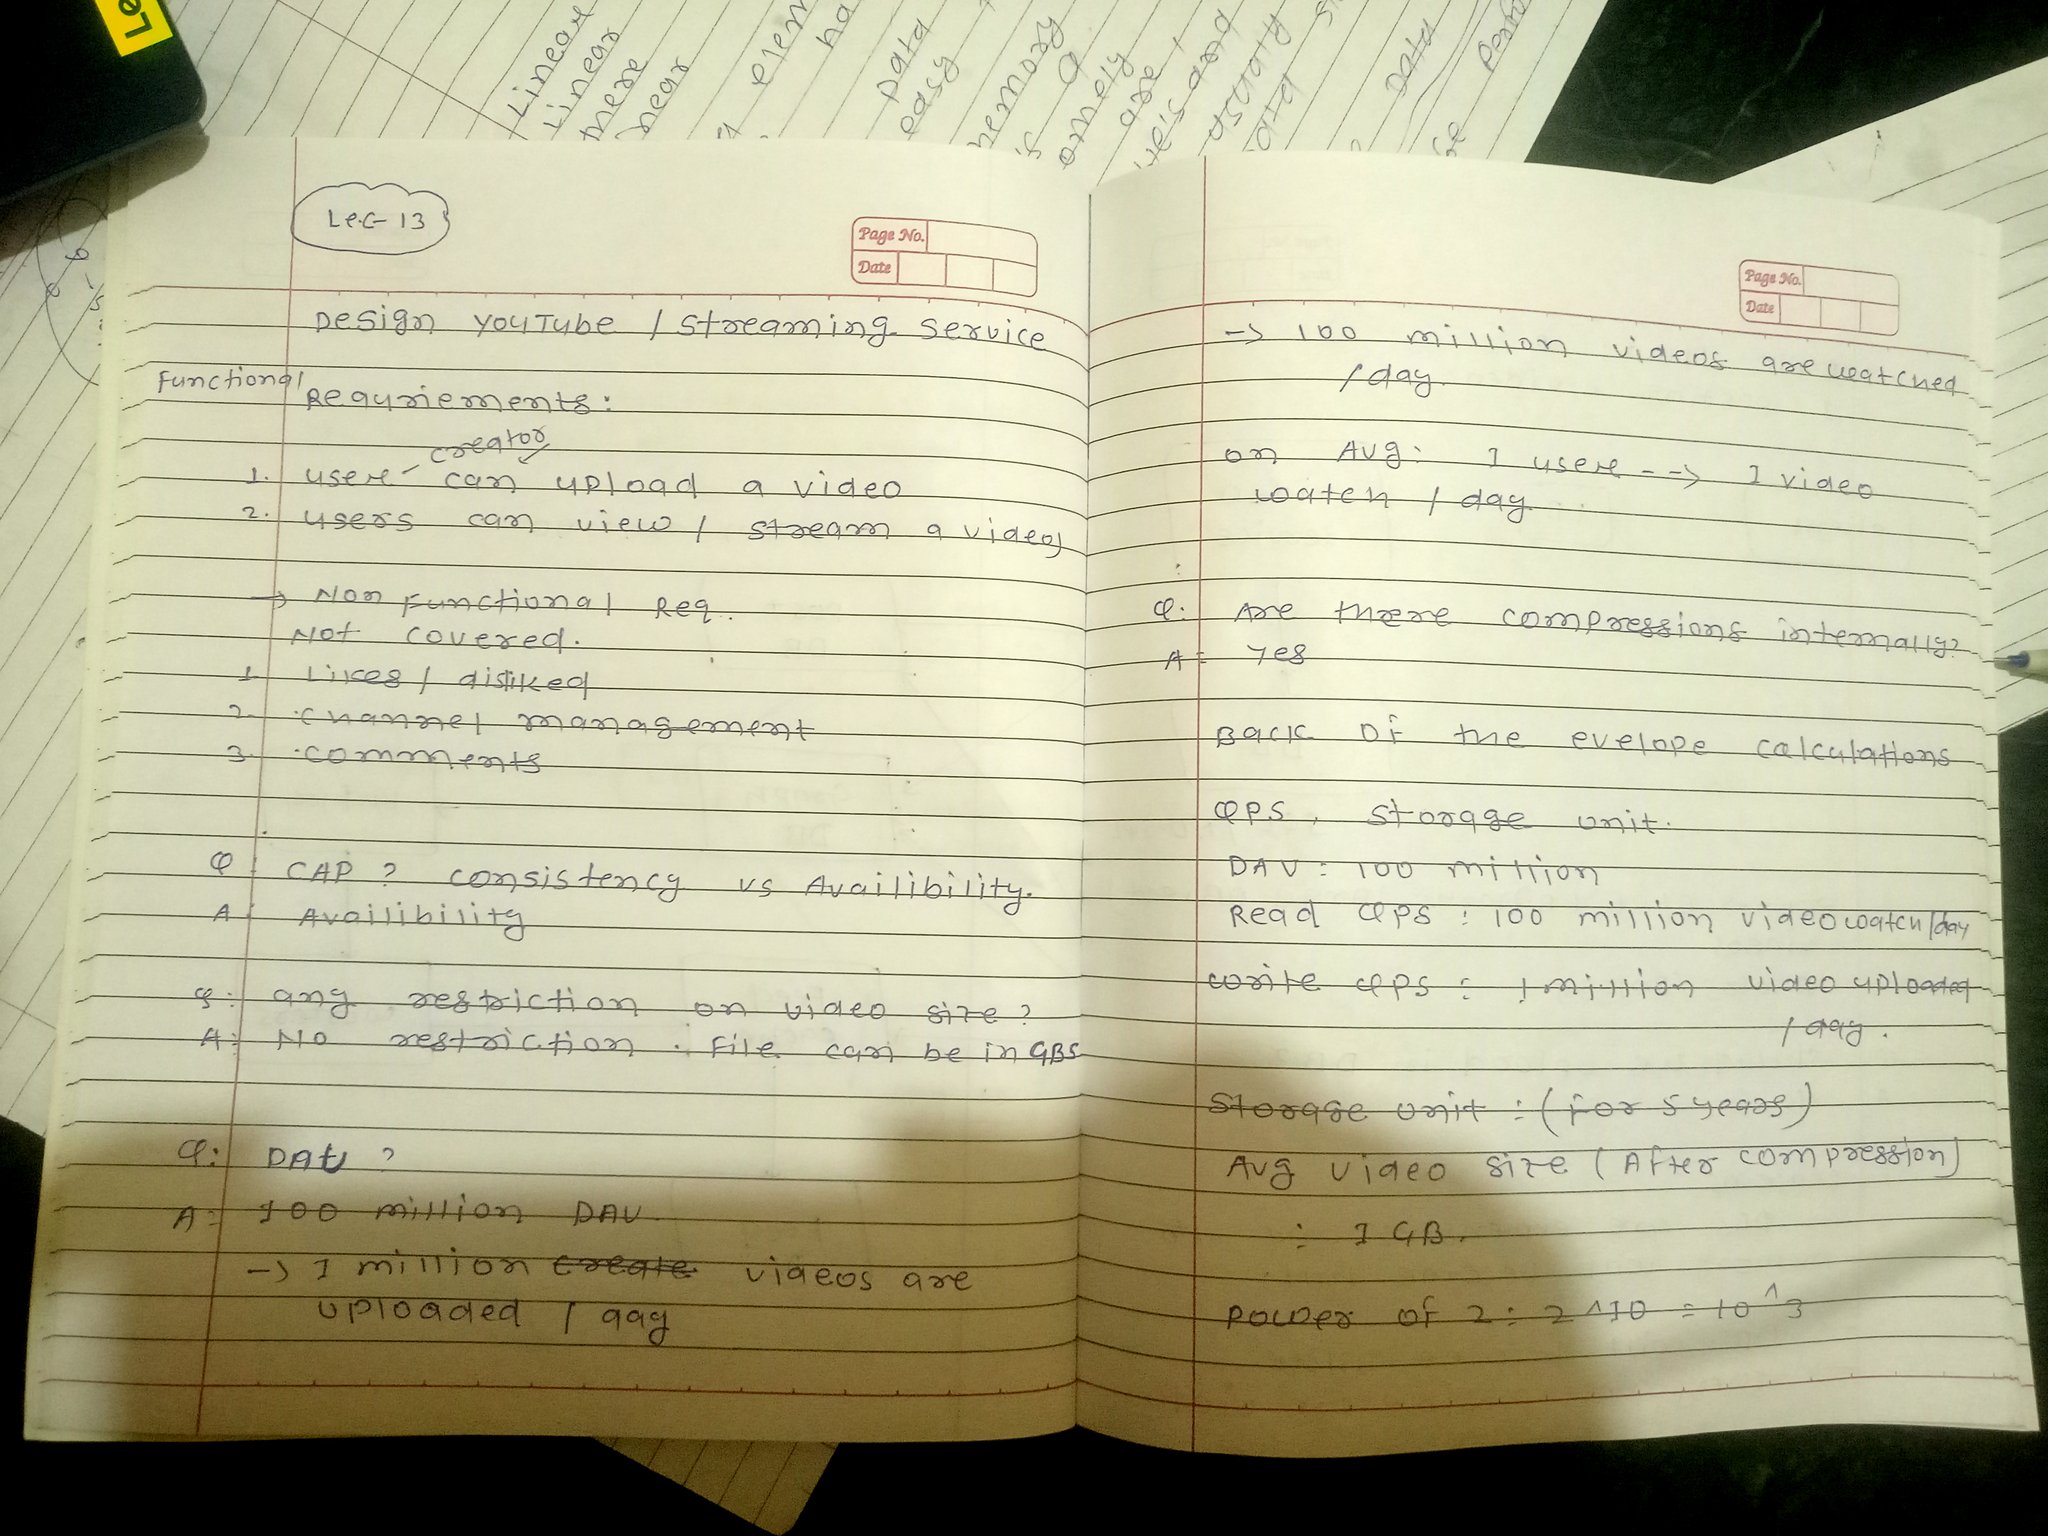 Le
Linear
Linear
there
near
elem
ha
Data
easy
memory
is a
omely
are
ve's and
usually
ata
Data
Lec-13
Page No.
Date
Design YouTube / Streaming Service
Functional
Requriements:
creator
1. user can upload a video
2. users can view / stream a videos
→ Non Functional Req.
Not covered.
1. Likes / disliked
2. channel management
3. comments
Q: CAP ? consistency vs Availibility.
A: Availibility
Q: any restriction on video size ?
A: No restriction . File can be in GBs
Q: DAU ?
A: 100 million DAU
-> 1 million create videos are
uploaded / day
Page No.
Date
-> 100 million videos are watched
/ day.
on Avg: 1 user --> 1 video
watch / day.
Q: Are there compressions internally?
A: Yes
Back of the evelope calculations
QPS, Storage unit.
DAU: 100 million
Read QPS: 100 million video watch/day
write QPS: 1 million video uploaded
/ day.
Storage unit: (for 5 years)
Avg video size (After compression)
: 1 GB.
power of 2: 2^10 = 10^3